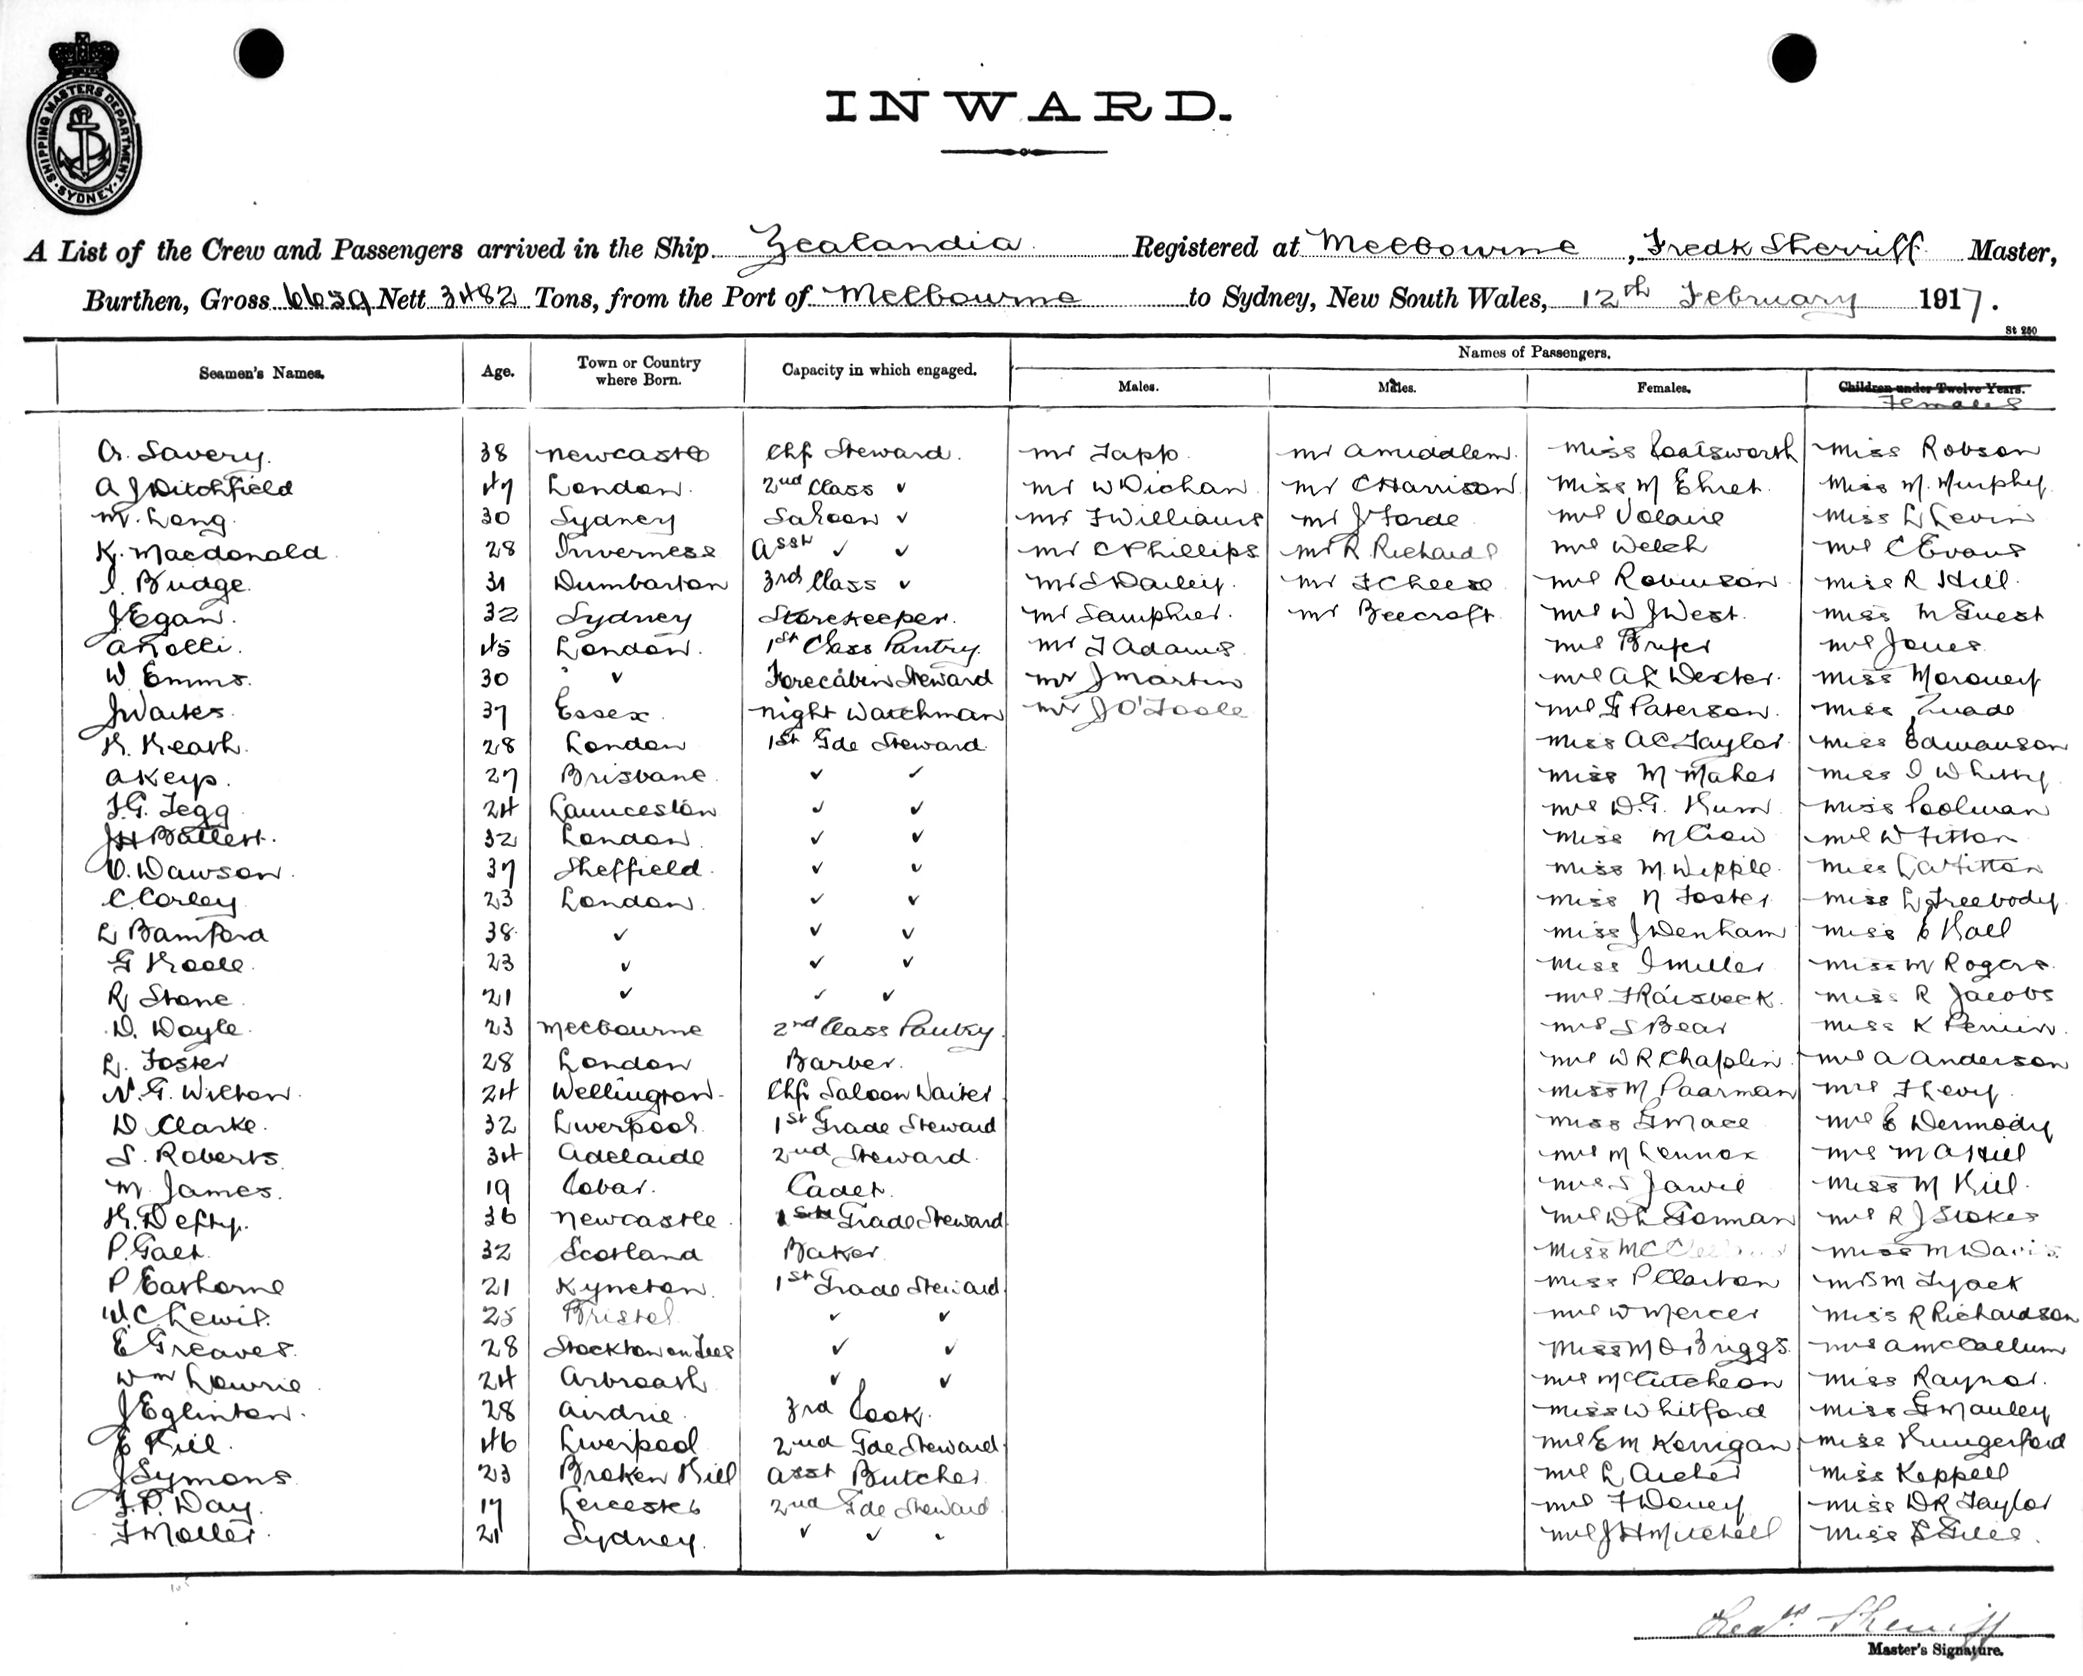 SHIPPING MASTERS DEPARTMENT. SYDNEY.
INWARD.
A List of the Crew and Passengers arrived in the Ship Zealandia Registered at Melbourne, Fredk Sherriff Master,
Burthen, Gross 6659 Nett 3482 Tons, from the Port of Melbourne to Sydney, New South Wales, 12th February 1917.
St 250
Seamen's Names. Age. Town or Country where Born. Capacity in which engaged. Names of Passengers.
Males. Males. Females. Children under Twelve Years. Females
A. Savery. 38 Newcastle Chf Steward. Mr Tapp. Mr A Middlem. Miss Coatsworth Miss Robson
A J Ditchfield 47 London. 2nd Class ✓ Mr W Dichan Mr C Harrison Miss M Ehret. Miss M. Murphy
M. Long. 30 Sydney Saloon ✓ Mr F Williams Mr J Forde Mrs Volaire Miss L Levin
K. Macdonald 28 Inverness Asst ✓ ✓ Mr C Phillips Mr R Richards Mrs Welch Mrs C Evans
I. Budge. 31 Dumbarton 3rd Class ✓ Mr S Dailey. Mr F Cheese Mrs Robinson Miss R Hill.
J Egan. 32 Sydney Storekeeper. Mr Samphier. Mr Beecroft. Mrs W J West. Miss M Guest
A Rolli. 45 London. 1st Class Pantry. Mr F Adams Mrs Mrs Jones
W. Emms. 30 ✓ Forecabin Steward Mr J Martin Mrs A L Dexter. Miss
J Waites. 37 Essex. Night Watchman Mr J O'Toole Mrs G Paterson. Miss Quade
H. Heath. 28 London 1st Gde Steward. Miss A C Taylor Miss Edmanson
A Keys. 27 Brisbane. ✓ ✓ Miss M Maher Miss I Whitty.
F. G. Tegg 24 Launceston ✓ ✓ Mrs D. G. Hum Miss Poolman
J H Battert. 32 London. ✓ ✓ Miss M Crow Mrs W Fitton
V. Dawson. 37 Sheffield. ✓ ✓ Miss M. Wipple. Miss Fitton
C. Corley 23 London. ✓ ✓ Miss N Foster Miss L Freebody.
L Bamford 38. ✓ ✓ ✓ Miss J Denham Miss E Hall
G Hoole. 23 ✓ ✓ ✓ Miss I Miller Miss M Rogers.
R Stone. 21 ✓ ✓ ✓ Mrs F Raisbeck. Miss R Jacobs
D. Doyle. 23 Melbourne 2nd Class Pantry. Mrs S Bear Miss K
L. Foster 28 London Barber. Mrs W R Chaplin. Mrs A Anderson
N. G. Wilton. 24 Wellington. Chf Saloon Waiter Miss M Paarman Mrs F Levy.
D Clarke. 32 Liverpool. 1st Grade Steward Miss G Mace Mrs E Dermody
S. Roberts 34 Adelaide 2nd Steward. Mrs M Lennox Mrs M A Hill
M. James. 19 Cobar. Cadet. Mrs S Jarvie Miss M Hill.
H. Defty. 36 Newcastle. 1st Grade Steward Mrs D L Gorman Mrs R J Stokes
P. Galt. 32 Scotland Baker. Miss Miss M Davis.
P Eathorne 21 Kyneton. 1st Grade Steward. Miss P Claxton Mrs M Tyack
W. C Lewis. 25 Bristol ✓ ✓ Mrs W Mercer Miss R Richardson
E Greaves. 28 Stockton on Tees ✓ ✓ Miss M O Briggs. Mrs A McCallum
Wm Lowrie. 24 Arbroath. ✓ ✓ Mrs McCutcheon Miss Raynor.
J Eglinton. 28 Airdrie. 3rd Cook. Miss Whitford Miss G Manley
E Hill. 46 Liverpool 2nd Gde Steward. Mrs E M Korrigan Miss Hungerford
J Symons 23 Broken Hill Asst Butcher Mrs L Archer Miss Keppell
F. P. Day. 17 Leicester 2nd Gde Steward Mrs F Davey Miss D R Taylor
F Moller. 21 Sydney. ✓ ✓ ✓ Mrs J H Mitchell Miss S Giles.
Fredk Sherriff
Master's Signature.